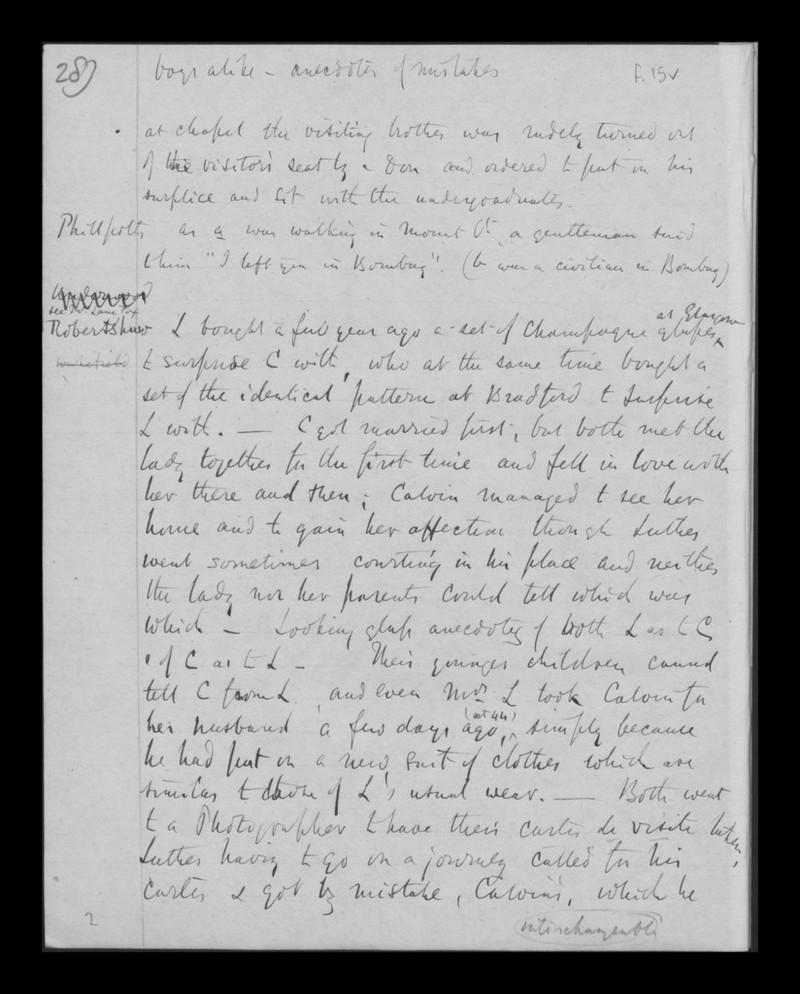 28) boys alike - anecdotes of mistakes F. 15v
at chapel the visiting brother was rudely turned out
of the visitor's seat by a Don and ordered to put on his
surplice and sit with the undergraduates.
Phillpotts as a was walking in Mount St, a gentleman said
to him "I left you in Bombay". (b was a civilian in Bombay)
see same
Robertshaw L bought a few year ago a set of Champagne glasses at Glasgow
to surprise C with, who at the same time bought a
set of the identical pattern at Bradford to surprise
L with. — C got married first, but both met the
lady together for the first time and fell in love with
her there and then; Calvin managed to see her
home and to gain her affection though Luther
went sometimes courting in his place and neither
the lady nor her parents could tell which was
which – Looking glass anecdotes of both L as to C
& of C as to L – Their younger children cannot
tell C from L, and even Mrs L took Calvin for
her husband a few days ago, (at 44) simply because
he had put on a new suit of clothes which are
similar to those of L's usual wear. — Both went
to a Photographer to have their cartes de visite taken,
Luther having to go on a journey called for his
cartes & got by mistake, Calvin's, which he
2 interchangeable